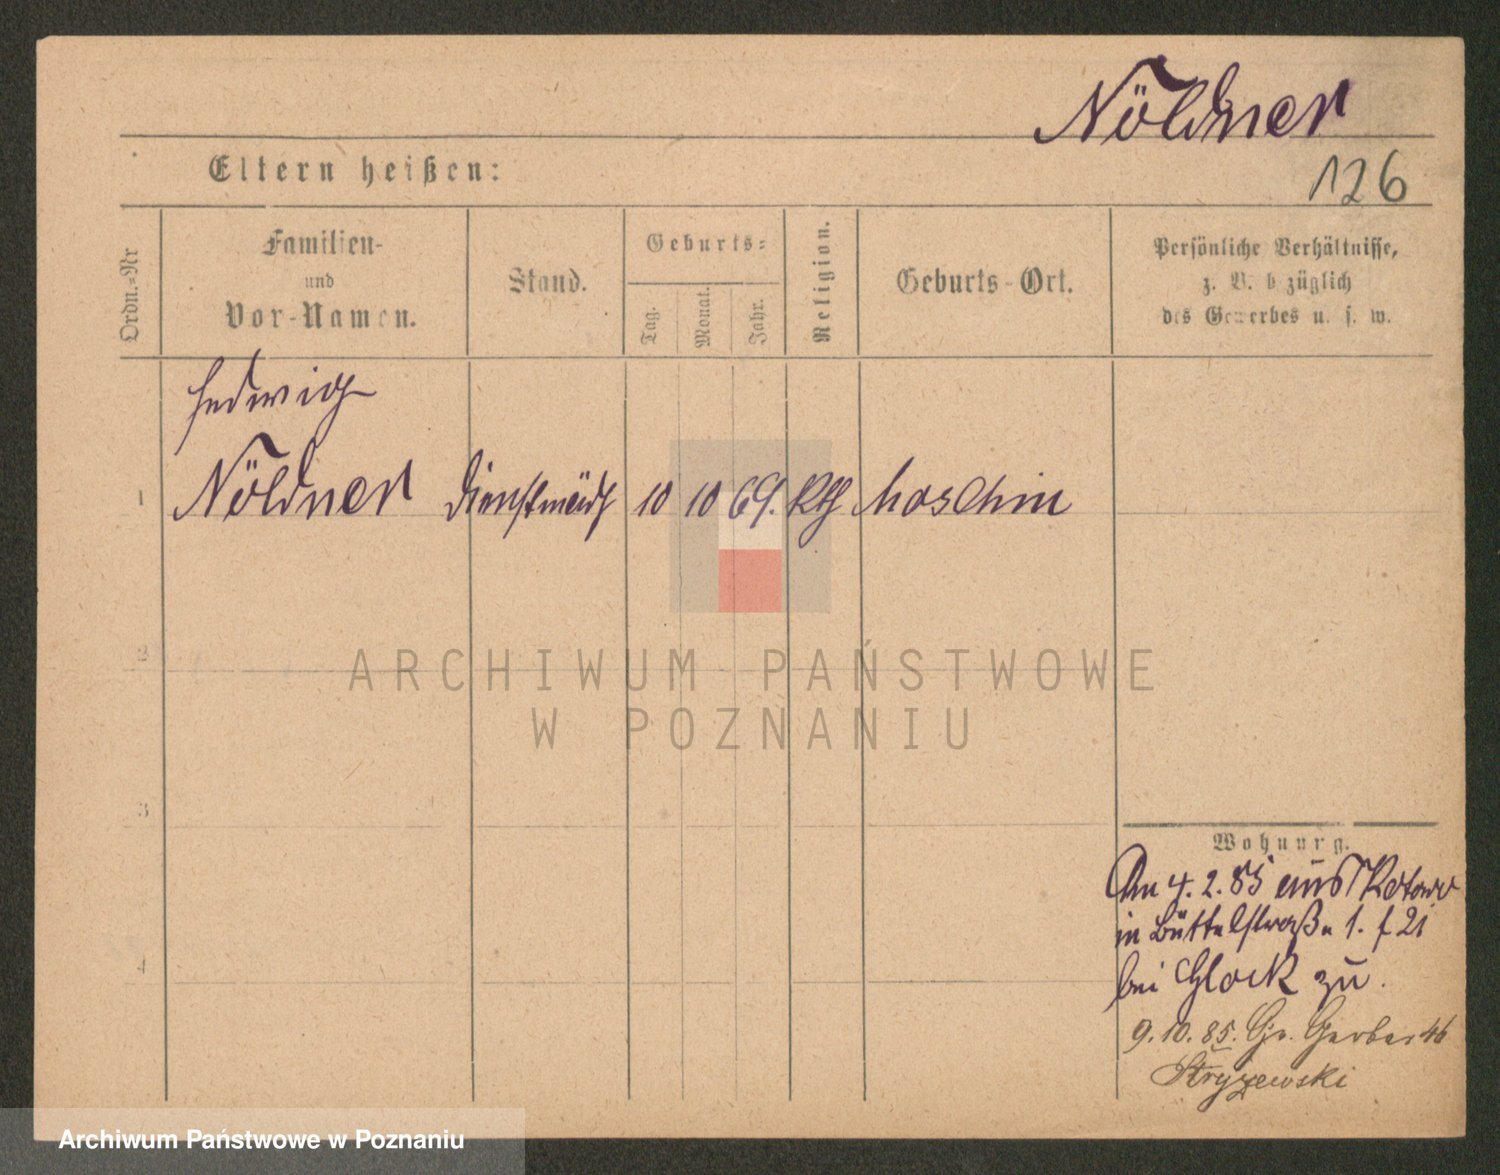 Nöldner
Eltern heißen:
126
Ordn.-Nr
Familien-
und
Vor-Namen.
Stand.
Geburts-
Tag.
Monat.
Jahr.
Religion.
Geburts-Ort.
Persönliche Verhältnisse,
z. B. bezüglich
des Gewerbes u. s. w.
Hedwig
1 Nöldner Dienstmädch 10 10 69. Kth Moschin
2
ARCHIWUM PAŃSTWOWE
W POZNANIU
3
Wohnung.
Am 4. 2. 85 aus
in Büttelstraße 1. f 21
4
bei Glock zu.
9. 10. 85. Gr. Gerber 46
Stryzewski
Archiwum Państwowe w Poznaniu